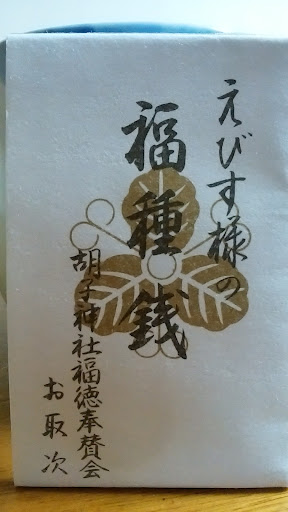 えびす様の
福種銭
胡子神社福徳奉賛会
お取次